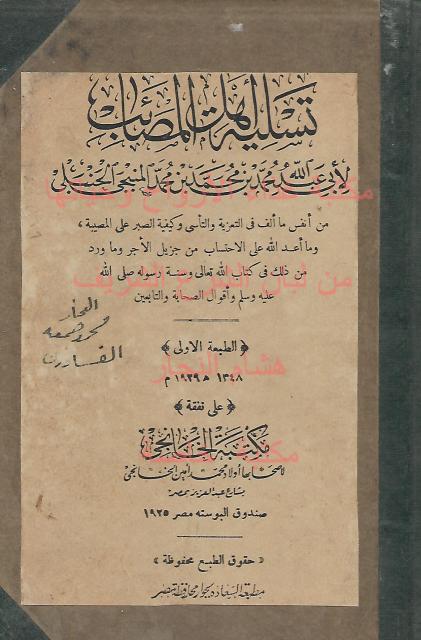 تسلية أهل المصائب
لأبي عبد الله محمد بن محمد بن محمد المنبجي الحنبلي
من أنفس ما ألف في التعزية والتأسى وكيفية الصبر على المصيبة ،
وما أعد الله على الاحتساب من جزيل الأجر وما ورد
من ذلك في كتاب الله تعالى وسنة رسوله صلى الله
عليه وسلم وأقوال الصحابة والتابعين
﴿ الطبعة الأولى ﴾
١٣٤٨ ه ١٩٢٩ م
﴿ على نفقة ﴾
مكتبة الخانجى
لأصحابها أولاد محمد أمين الخانجى
بشارع عبد العزيز بمصر
صندوق البوسته مصر ١٩٢٥
« حقوق الطبع محفوظة »
مطبعة السعادة بجوار محافظة مصر
النجار
هشام النجار